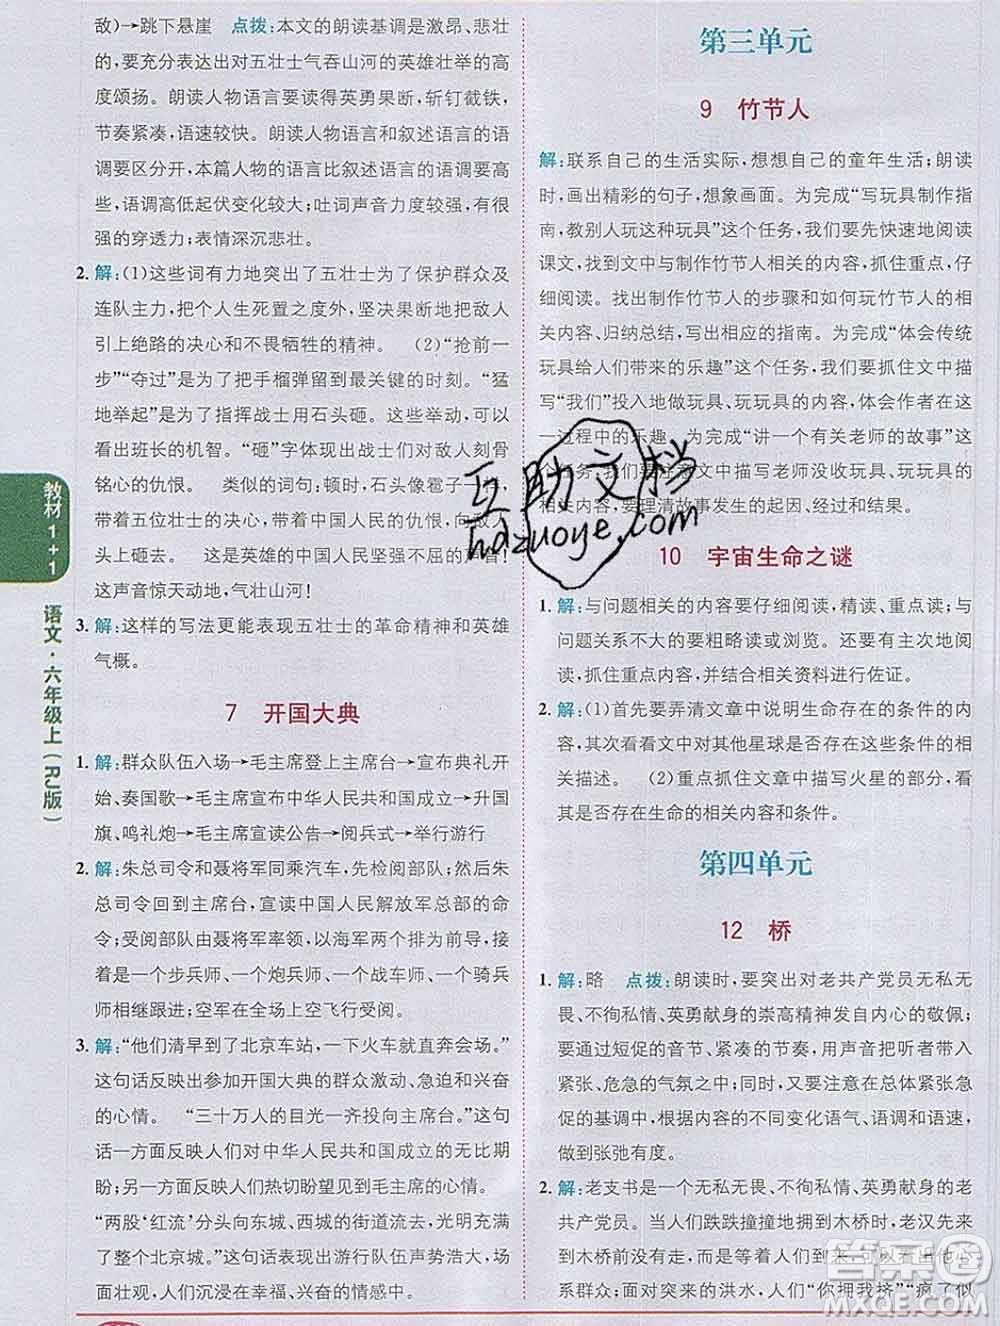 敌)→跳下悬崖　点拨:本文的朗读基调是激昂、悲壮
的。要充分表达出对五壮士气吞山河的英雄壮举的高
度颂扬。朗读人物语言要读得英勇果断，斩钉截铁，
节奏紧凑，语速较快。朗读人物语言和叙述语言的语
调要区分开，本篇人物的语言比叙述语言的音调要
高，语调高低起伏变化较大；吐词声音力度较强，有较
强的穿透力；表情深沉悲壮。
2. 解:(1)这些词有力地突出了五壮士为了保护群众及
连队主力，把个人生死置之度外，坚决果断地把敌人
引上绝路的决心和不畏牺牲的精神。　(2)“抢前一
步”“夺过”是为了把手榴弹留到最关键的时刻。“猛
地举起”是为了指挥战士用石头砸。这些举动，可以
看出班长的机智。“砸”字体现出战士们对敌人刻骨
铭心的仇恨。　类似的词句：顿时，石头像雹子一样，
带着五位壮士的决心，带着中国人民的仇恨，向敌人
头上砸去。　这是英雄的中国人民坚强不屈的声音！
这声音惊天动地，气壮山河！
3. 解:这样的写法更能表现五壮士的革命精神和英雄
气概。
7　开国大典
1. 解:群众队伍入场→毛主席登上主席台→宣布典礼开
始、奏国歌→毛主席宣布中华人民共和国成立→升国
旗、鸣礼炮→毛主席宣读公告→阅兵式→举行游行
2. 解:朱总司令和聂将军同乘汽车，先检阅部队；然后朱
总司令回到主席台，宣读中国人民解放军总部的命令。
受阅部队由聂将军率领，以海军两个排为前导，接着
是一个步兵师、一个炮兵师、一个战车师、一个骑兵
师相继跟进；空军在全场上空自东向西飞行受阅。
3. 解:“他们清早到了北京车站，一下火车就直奔会场。”
这句话反映出参加开国大典的群众激动、急迫和兴奋
的心情。　“三十万人的目光一齐投向主席台。”这句
话一方面反映人们对中华人民共和国成立的无比期
盼；另一方面反映人们热切盼望见到毛主席的心情。
“两股‘红流’分头向东城、西城的街道流去，光明充满
了整个北京城。”这句话表现出游行队伍声势浩大，场
面之大，人们沉浸在幸福、兴奋的情感中。
第三单元
9　竹节人
解:联系自己的生活实际，想想自己的童年生活；朗读
时，画出精彩的句子，想象画面。为完成“写玩具制作指
南，教别人玩这种玩具”这个任务，要先快速地阅读
课文，找到文中与制作竹节人相关的内容，抓住重点，仔
细阅读。找出制作竹节人的步骤和如何玩竹节人的相
关内容、归纳总结，写出相应的指南。为完成“体会传统
玩具给人们带来的乐趣”这个任务，要抓住文中描
写“我们”投入地做玩具、玩玩具的内容，体会作者在这
一过程中的乐趣。为完成“讲一个有关老师的故事”这
个任务，要注意文中描写老师没收玩具、玩玩具的相
关内容，要理清故事发生的起因、经过和结果。
10　宇宙生命之谜
1. 解:与问题相关的内容要仔细阅读，精读、重点读；与
问题关系不大的要粗略读或浏览。还要有主次地阅
读，抓住重点内容，并结合相关资料进行佐证。
2. 解:(1)首先要弄清文章中说明生命存在的条件的内
容，然后看看文中对其他星球是否存在这样的条件的
描述。　(2)重点抓住文章中描写火星的部分，看
是否存在生命的相关内容和条件。
第四单元
12　桥
1. 解:略　点拨:朗读时，要突出对老共产党员无私无
畏、不徇私情、英勇献身的崇高精神发自内心的敬佩；
要通过短促的音节、紧凑的节奏，用声音把听者带入
紧张、危急的气氛之中；同时，又要注意在总体紧张急
促的基调中，根据内容的不同变化语气、语调和语速，
做到张弛有度。
2. 解:老支书是一个无私无畏、不徇私情、英勇献身的老
共产党员。当人们跌跌撞撞地拥向木桥时，老汉先到
木桥前没有过去，而是等着人们，并以党员的身份指挥
群众；面对突来的洪水，人们“你拥我挤”“疯了似
教材1+1
语文·六年级上(RJ版)
互助文档
hdzuoye.com
答案圈
MXQE.COM